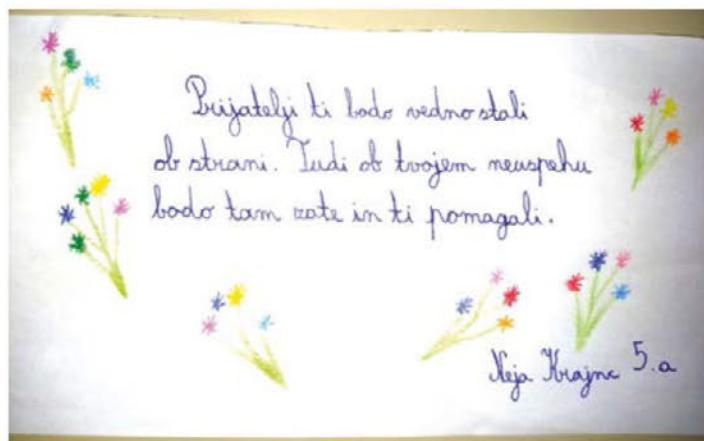 Prijatelji ti bodo vedno stali
ob strani. Tudi ob tvojem neuspehu
bodo tam zate in ti pomagali.
Neja Krajnc 5.a